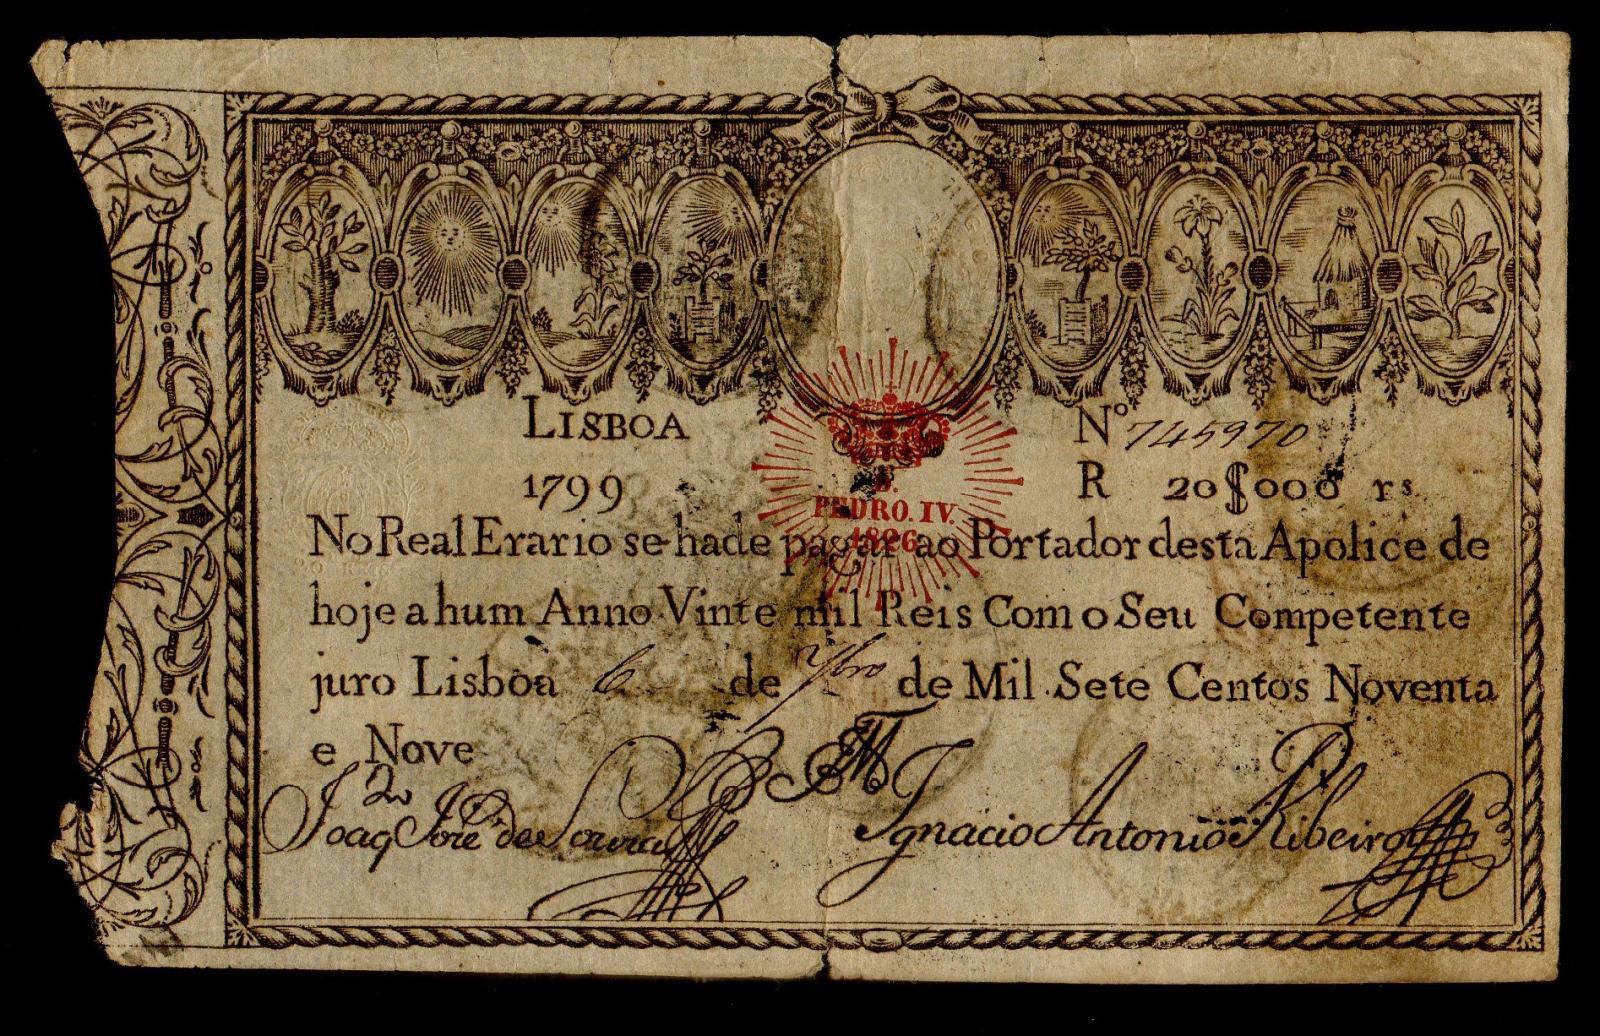 LISBOA
Nº 745970
1799
R 20$000 rs.
D.
PEDRO. IV.
1826
No Real Erario se-hade pagar ao Portador desta Apolice de
hoje a hum Anno Vinte mil Reis Com o Seu Competente
juro Lisboa 6 de 7bro de Mil Sete Centos Noventa
e Nove
Joaq Joze de Souza
Ignacio Antonio Ribeiro